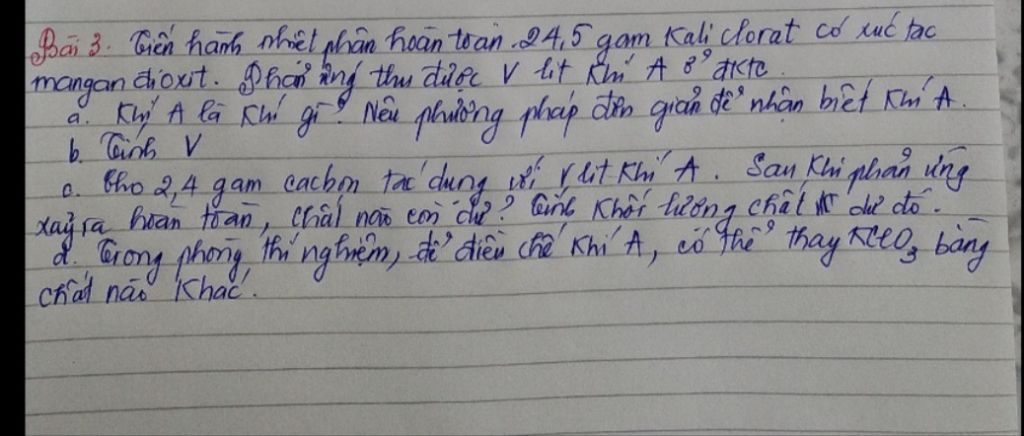 Bài 3. Tiến hành nhiệt phân hoàn toàn 24,5 gam Kali clorat có xúc tác
mangan đioxit. Phản ứng thu được V lít Khí A ở đktc.
a. Khí A là Khí gì? Nêu phương pháp đơn giản để nhận biết Khí A.
b. Tính V
c. Cho 2,4 gam cacbon tác dụng với V lít Khí A. Sau Khi phản ứng
xảy ra hoàn toàn, chất nào còn dư? Tính Khối lượng chất dư đó.
d. Trong phòng thí nghiệm, để điều chế Khí A, có thể thay KClO3 bằng
chất nào Khác.